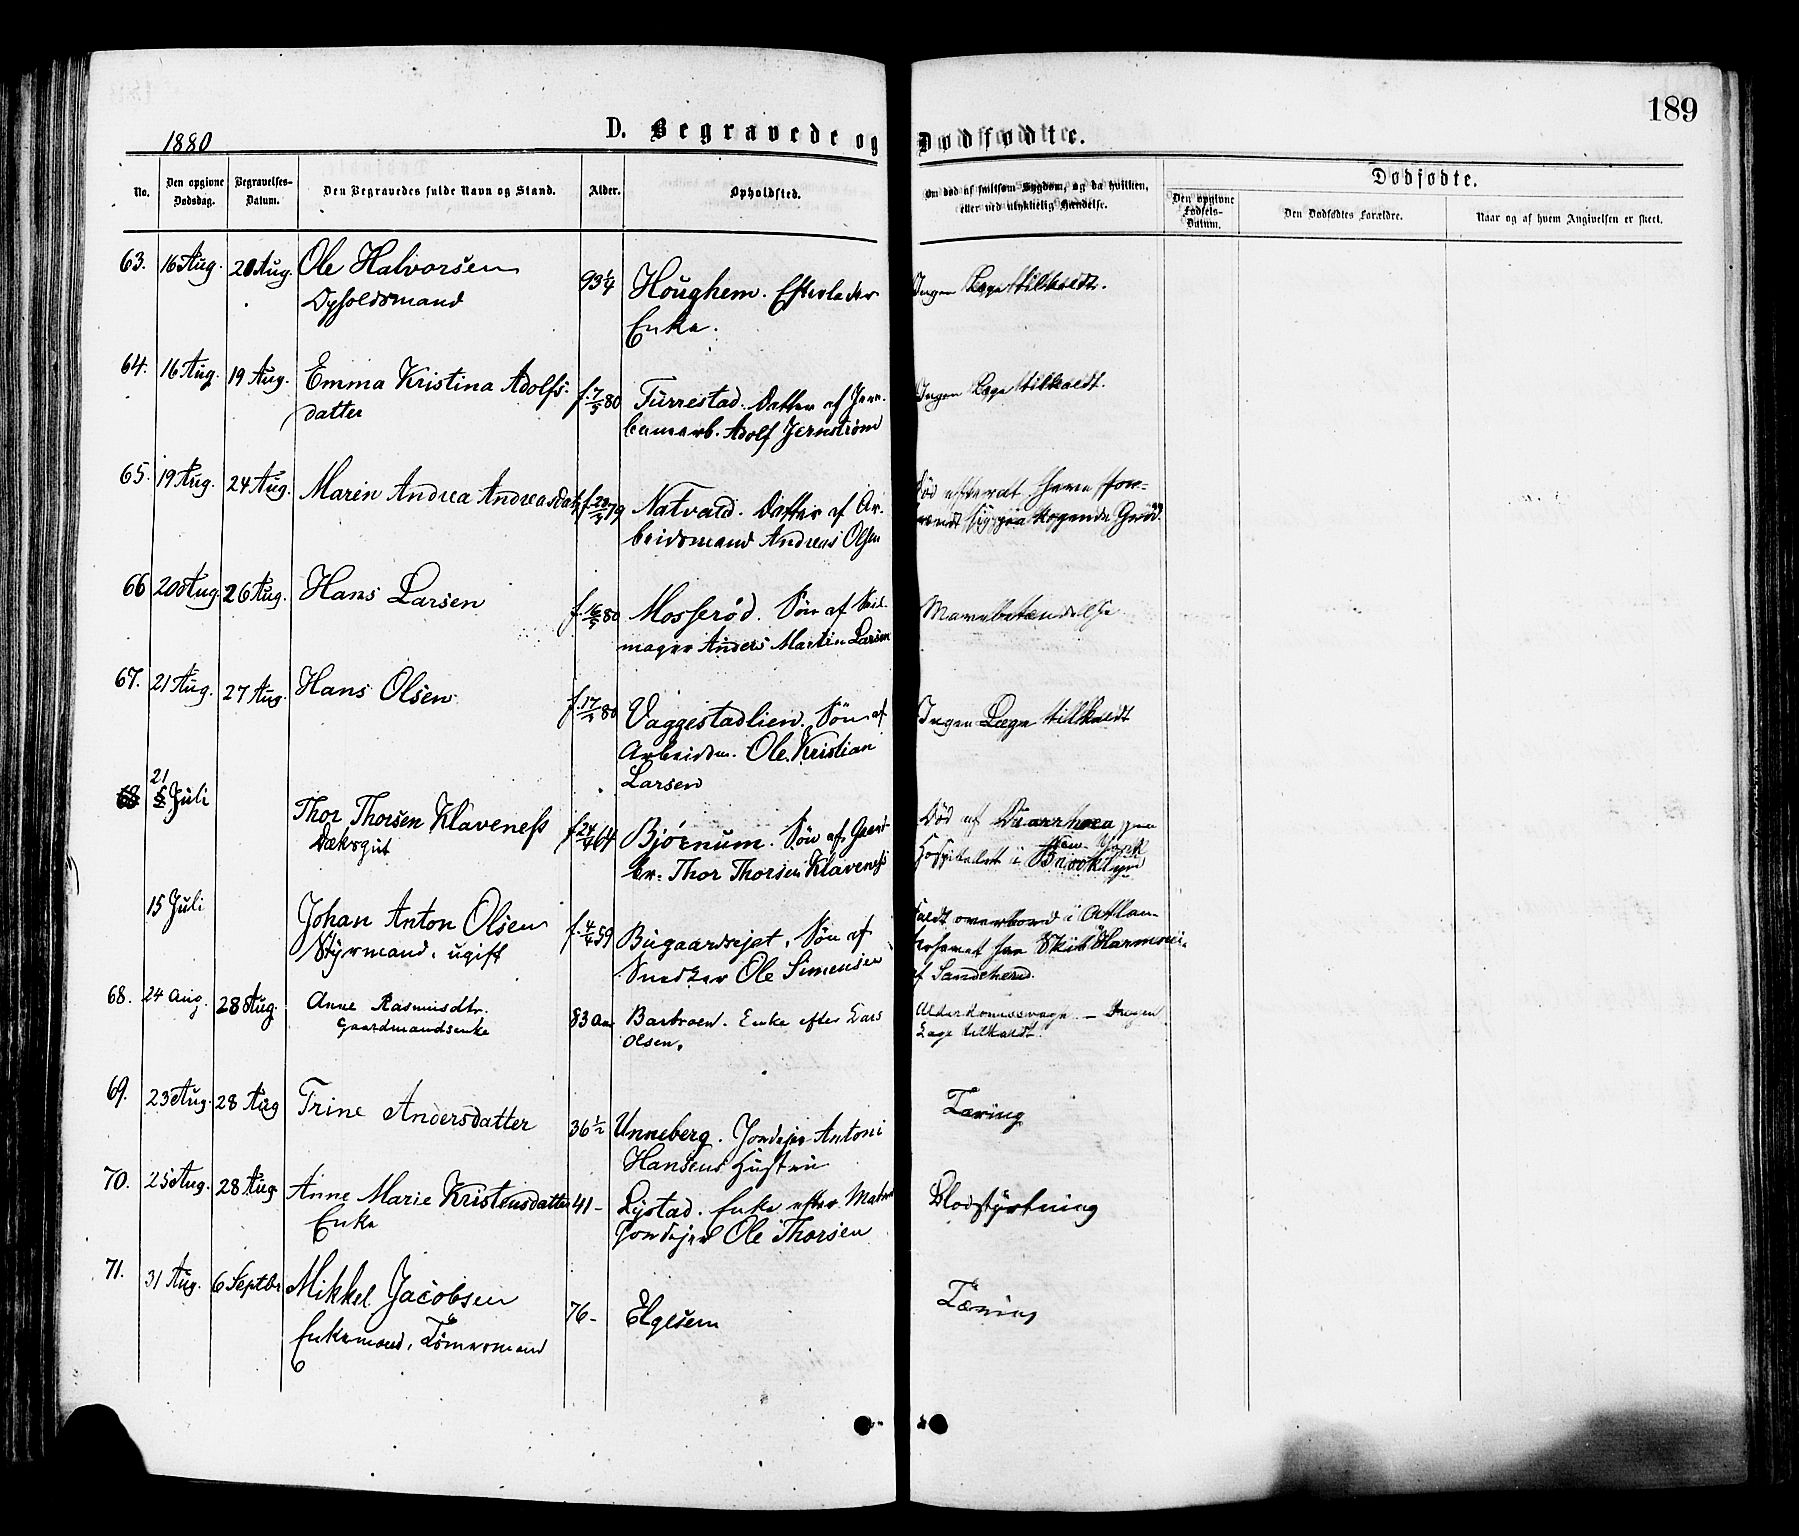 189
1880
D. Begravede og Dødfødte.
No. Den opgivne Dødsdag. Begravelses-Datum. Den Begravedes fulde Navn og Stand. Alder. Opholdssted. Om død af smitsom Sygdom, og da hvilken, eller ved ulykkelig Hændelse.
Dødfødte.
Den opgivne Fødsels-Datum. Den Dødfødtes Forældre. Naar og af hvem Angivelsen er skeet.
63. 16 Aug. 20 Aug. Ole Halvorsen 93 1/4 Hoüghem. Efterlader Ingen Læge tilkaldt.
Enke.
64. 16 Aug. 19 Aug. Emma Kristina Adolfs- f. 7/5 80 Fürrestad. Datter af Jern- Ingen Læge tilkaldt.
datter banearb. Adolf Jernstrøm
65. 19 Aug. 24 Aug. Maren Andrea Andreasdatt 79 Natvald. Datter af Ar- Død efter at have for-
beidsmand Andreas Olsen brændt sig paa kogende Grød.
66 20 Aug. 26 Aug. Hans Larsen 80 Mosserød. Søn af
mager Anders Martin Larsen Mavebetændelse
67. 21 Aug. 27 Aug. Hans Olsen f. 17 80 Vaggestadlien. Søn af Ingen Læge tilkaldt
Arbeidsm. Ole Kristian
Larsen
68 21 Juli Thor Thorsen Klaveness f. 24 64 Bjørnum. Søn af Gaard- Død af Diarrhoea paa
Dæksgut br. Thor Thorsen Klaveness Hospitalet i Brooklyn New-York
15 Juli Johan Anton Olsen f. 4 59 Bugaardsejet. Søn af Faldt overbord i Atlan-
Styrmand, ugift Snedker Ole Simensen terhavet fra Skib "Harmoni"
af Sandeherred.
68. 24 Aug. 28 Aug. Anne Rasmusdtr. 83 Aar Bastroen. Enke efter Lars Alderdomssvaghed. – Ingen
Gaardmandsenke Olsen. Læge tilkaldt.
69. 23 Aug. 28 Aug Trine Andersdatter 36 1/2 Unneberg. Jordejer Antoni Tæring
Hansens Hustru
70. 25 Aug. 28 Aug. Anne Marie Kristensdatter 41 – Lystad. Enke efter Blodstyrtning
Enke Jordejer Ole Thorsen
71. 31 Aug. 6 Septbr Mikkel Jacobsen 76 – Elgesem Tæring
Enkemand, Tømmermand